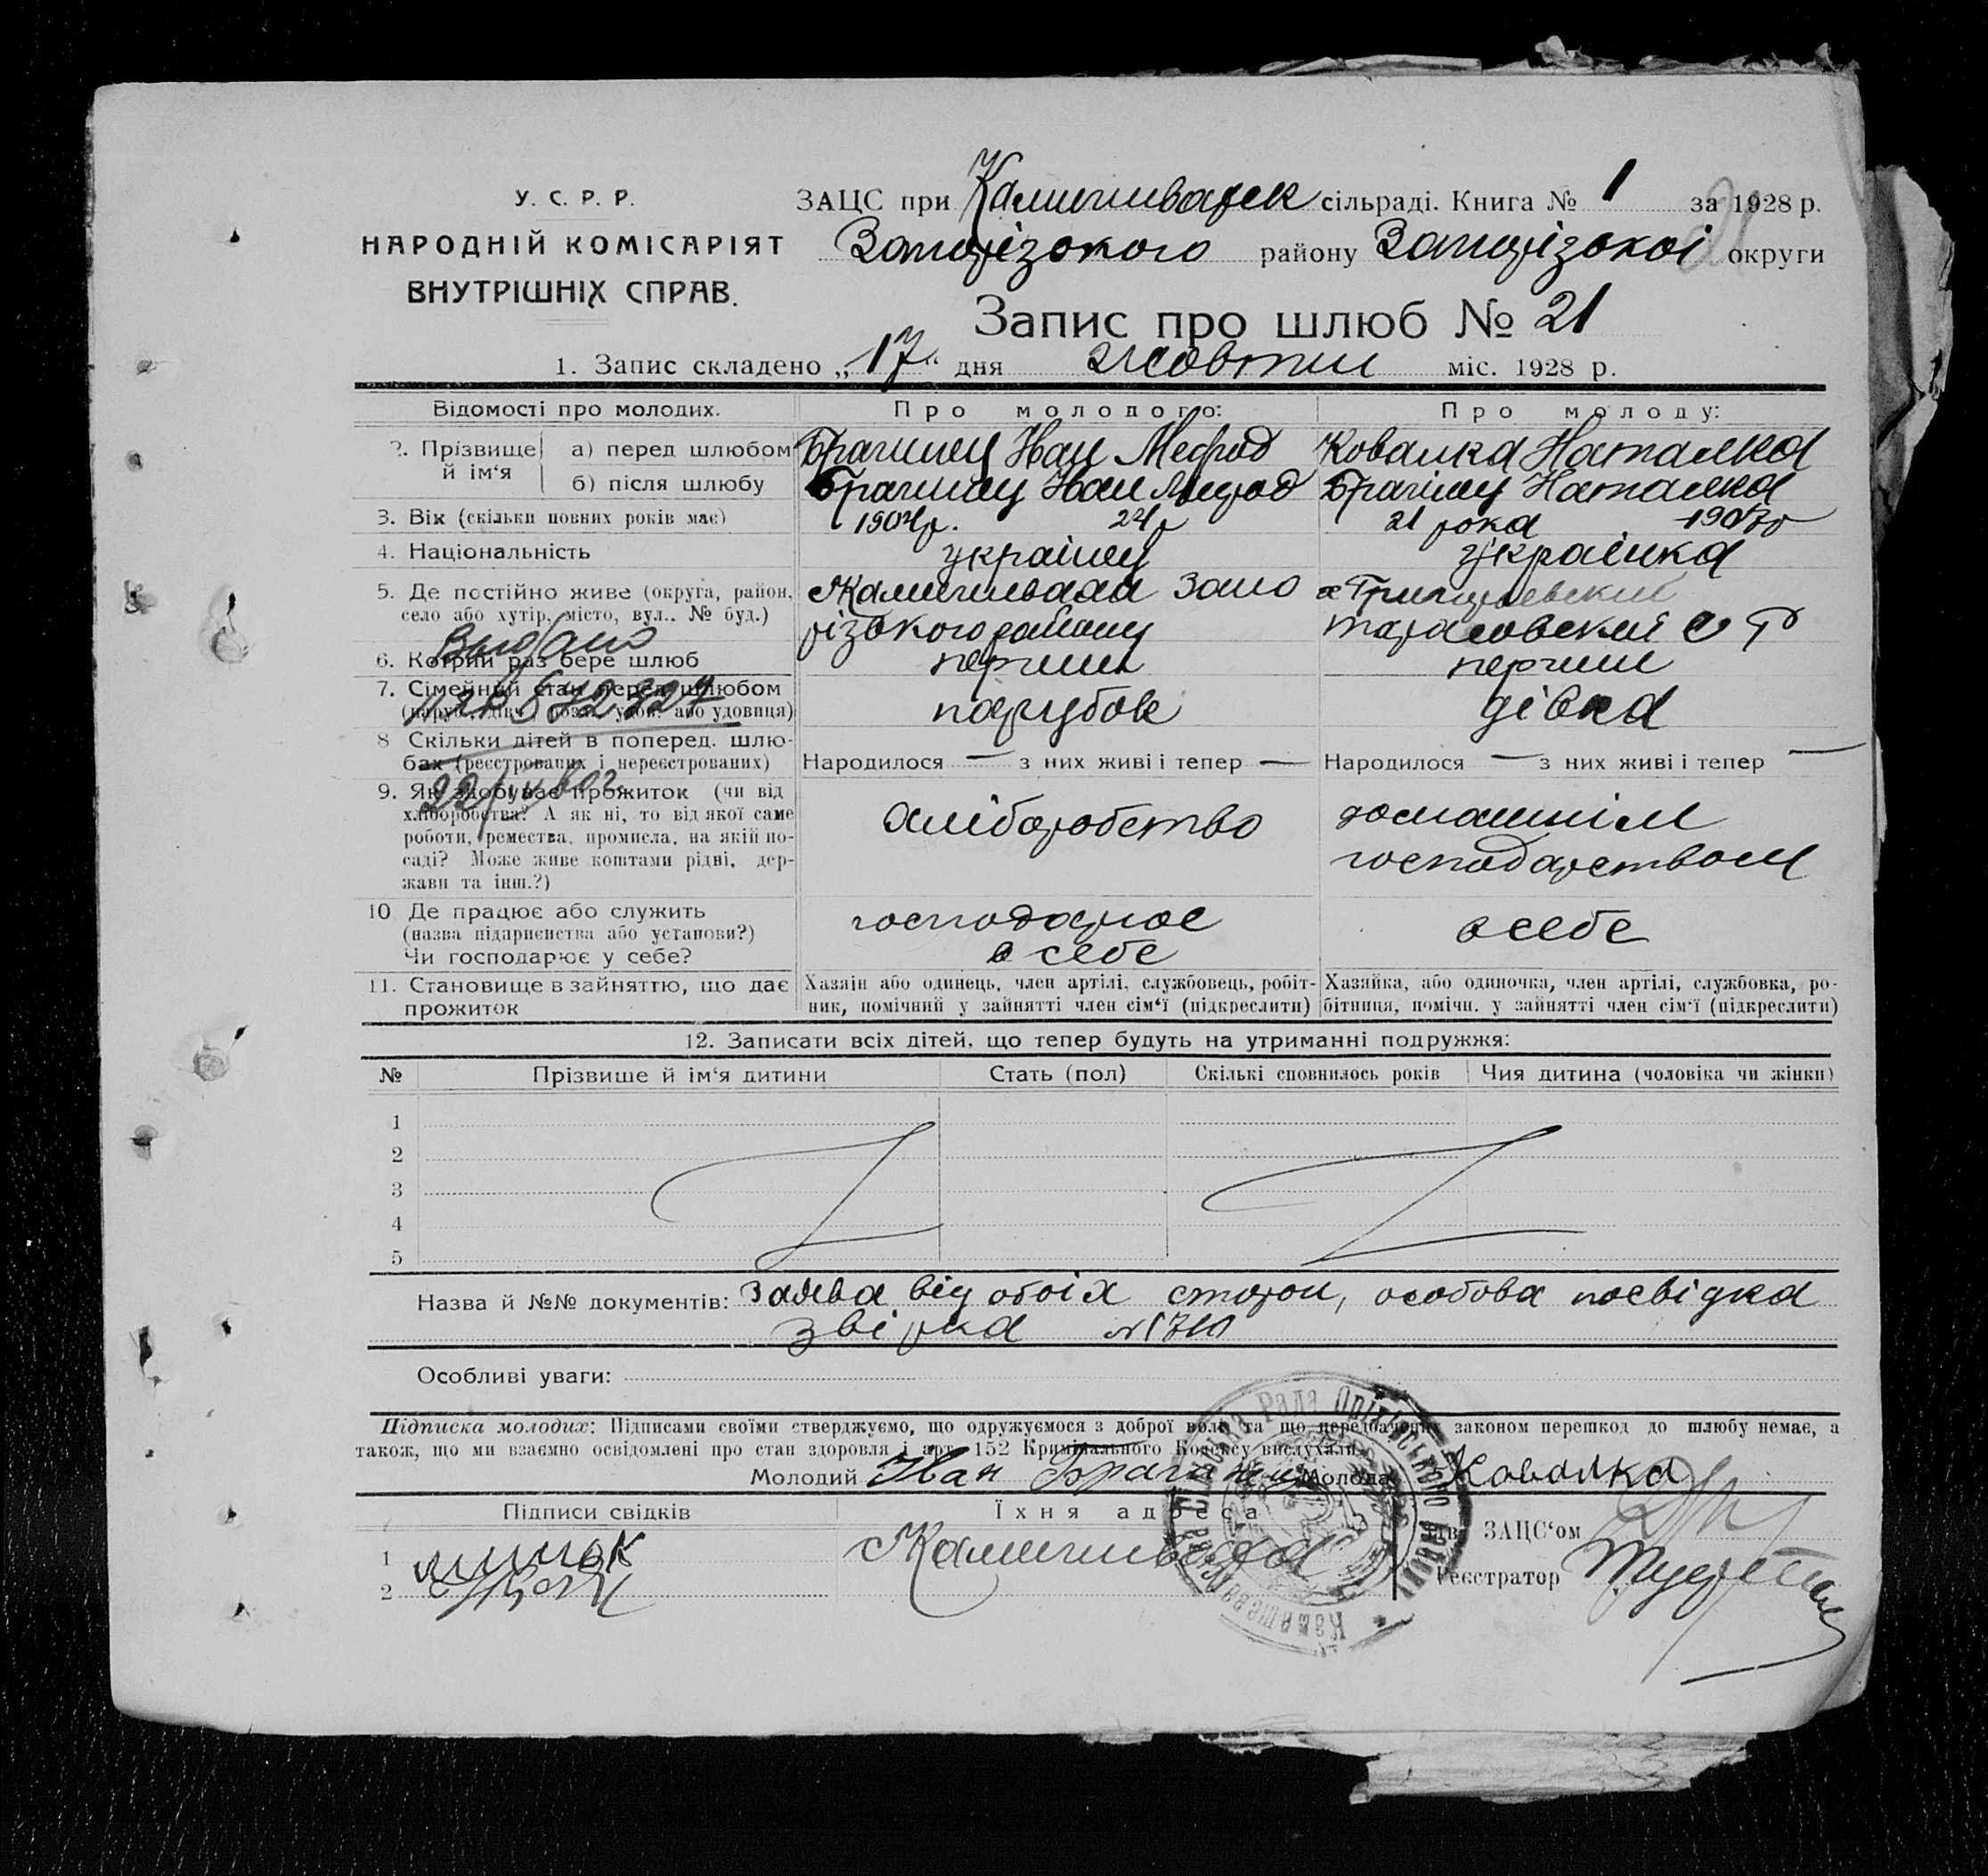 У. С. Р. Р.
НАРОДНІЙ КОМІСАРІЯТ
ВНУТРІШНІХ СПРАВ.
ЗАЦС при сільраді. Книга № 1 за 1928 р.
Запорізького району Запорізької округи
Запис про шлюб № 21
1. Запис складено „17“ дня жовтня міс. 1928 р.
Відомості про молодих. Про молодого: Про молоду:
2. Прізвище й ім‘я а) перед шлюбом Іван Мефод Ковалка Наталка
б) після шлюбу Іван Мефод Наталка
3. Вік (скільки повних років має) 1904р. 24р 21 рока 1907р
4. Національність українец українка
5. Де постійно живе (округа, район, село або хутір, місто, вул.. № буд.) Запо
різького району
Видано
6. Котрий раз бере шлюб перший перший
7. Сімейний стан перед шлюбом парубок дівка
№ 672327
8 Скільки дітей в поперед. шлю-
бах (реєстрованих і нереєстрованих) Народилося — з них живі і тепер — Народилося — з них живі і тепер —
9. Як здобуває прожиток (чи від
хліборобства? А як ні, то від якої саме
роботи, ремества, промисла, на якій по-
саді? Може живе коштами рідні, дер-
жави та інш.?)
хліборобство домашнім
господарством
10 Де працює або служить
(назва підприємства або установи?)
Чи господарює у себе?
господарює
в себе в себе
11. Становище в зайняттю, що дає
прожиток
Хазяїн або одинець, член артілі, службовець, робіт-
ник, помічний у зайнятті член сім‘ї (підкреслити)
Хазяйка, або одиночка, член артілі, службовка, ро-
бітниця, помічн. у зайнятті член сім‘ї (підкреслити)
12. Записати всіх дітей, що тепер будуть на утриманні подружжя:
№ Прізвище й ім‘я дитини Стать (пол) Скількі сповнилось років Чия дитина (чоловіка чи жінки)
1
2
3
4
5
Назва й №№ документів: Заява від обоіх сторон, особова посвідка
звірка
Особливі уваги:
Підписка молодих: Підписами своїми стверджуємо, що одружуємося з доброї волі та що передбачених законом перешкод до шлюбу немає, а
також, що ми взаємно освідомлені про стан здоровля і арт. 152 Кримінального Кодексу вислухали.
Молодий Іван Молода Ковалка
Підписи свідків Їхня адреса
Зав. ЗАЦС‘ом
1
2
Реєстратор
Сільська Рада Оріхівського району